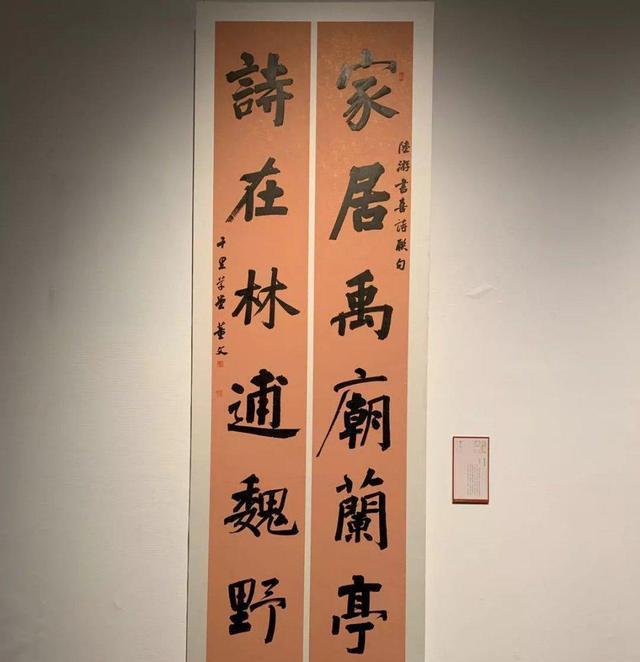 陸游書喜詩聯句
家居禹廟蘭亭
詩在林逋魏野
千里草堂 董文